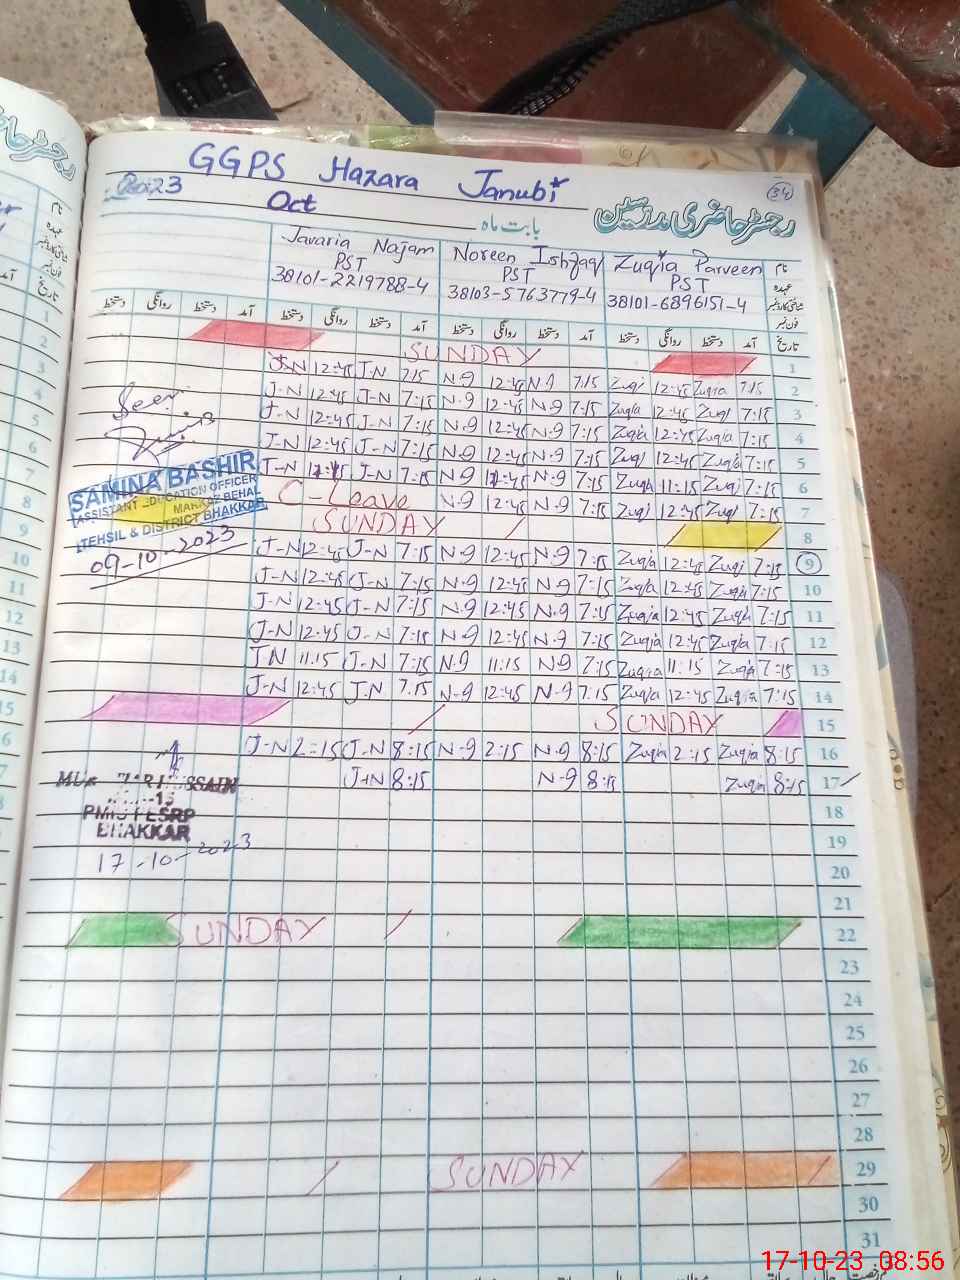 GGPS Hazara Janubi
34
2023
Oct
بابت ماہ
رجسٹر حاضری مدرسین
Javaria Najam Noreen Ishfaq Zuqia Parveen نام
PST PST PST عہدہ
38101-2219788-4 38103-5763779-4 38101-6896151-4 شناختی کارڈ نمبر
فون نمبر
دستخط روانگی دستخط آمد دستخط روانگی دستخط آمد دستخط روانگی دستخط آمد دستخط روانگی دستخط آمد تاریخ
SUNDAY 1
J-N 12:45 J-N 7:15 N-9 12:45 N-9 7:15 Zuqi 12:45 Zuqia 7:15 2
J-N 12:45 J-N 7:15 N-9 12:45 N-9 7:15 Zuqia 12:45 Zuqi 7:15 3
J-N 12:45 J-N 7:15 N-9 12:45 N-9 7:15 Zuqia 12:45 Zuqia 7:15 4
J-N 12:45 J-N 7:15 N-9 12:45 N-9 7:15 Zuqi 12:45 Zuqia 7:15 5
J-N J-N 7:15 N-9 N-9 7:15 Zuqia 11:15 Zuqi 7:15 6
C-Leave N-9 12:45 N-9 7:15 Zuqi 12:45 Zuqi 7:15 7
SUNDAY 8
J-N 12:45 J-N 7:15 N-9 12:45 N-9 7:15 Zuqia 12:45 Zuqi 7:15 9
J-N 12:45 J-N 7:15 N-9 12:45 N-9 7:15 Zuqia 12:45 Zuqia 7:15 10
J-N 12:45 J-N 7:15 N-9 12:45 N-9 7:15 Zuqia 12:45 Zuqia 7:15 11
J-N 12:45 J-N 7:15 N-9 12:45 N-9 7:15 Zuqia 12:45 Zuqia 7:15 12
JN 11:15 J-N 7:15 N-9 11:15 N-9 7:15 Zuqia 11:15 Zuqia 7:15 13
J-N 12:45 J-N 7:15 N-9 12:45 N-9 7:15 Zuqia 12:45 Zuqia 7:15 14
SUNDAY 15
J-N 2:15 J-N 8:15 N-9 2:15 N-9 8:15 Zuqia 2:15 Zuqia 8:15 16
J-N 8:15 N-9 8:15 Zuqia 8:15 17
18
19
20
21
SUNDAY 22
23
24
25
26
27
28
SUNDAY 29
30
31
Seen
SAMINA BASHIR
ASSISTANT EDUCATION OFFICER
MARKAZ BEHAL
TEHSIL & DISTRICT BHAKKAR
09-10-2023
PESRP
BHAKKAR
17-10-2023
17-10-23 08:56